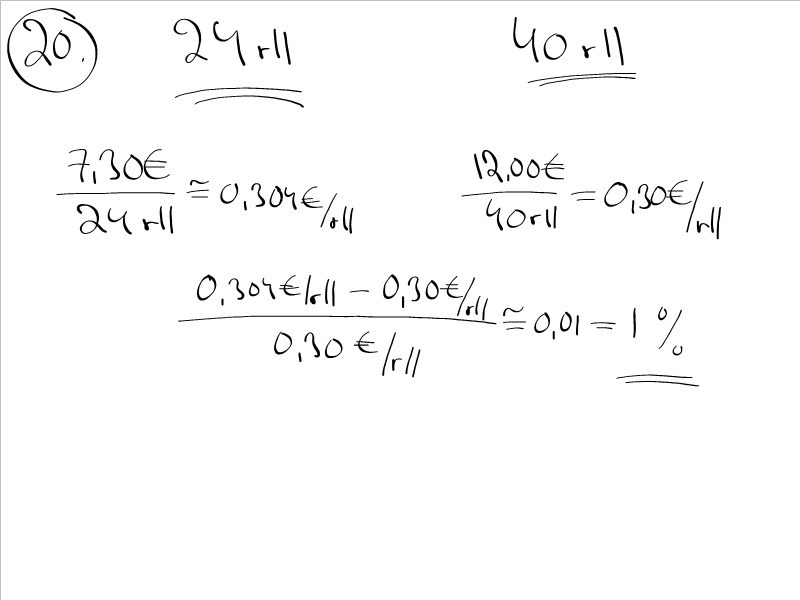 20. 24 rll 40 rll
7,30€ / 24 rll ≅ 0,304€/rll 12,00€ / 40 rll = 0,30€/rll
0,304€/rll − 0,30€/rll / 0,30€/rll ≅ 0,01 = 1 %